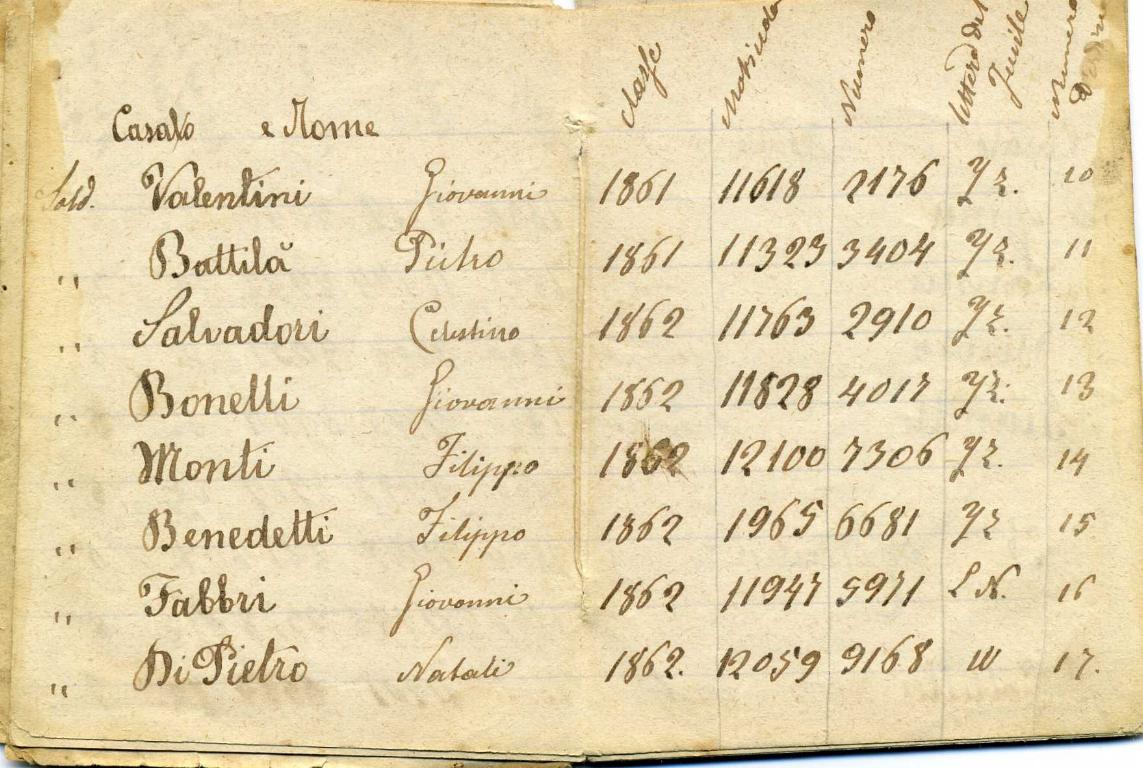 Casato e Nome Classe Matricola Numero Lettera del Fucile Numero
Sold. Valentini Giovanni 1861 11618 2176 YZ. 10
" Battilà Pietro 1861 11323 3404 YZ. 11
" Salvadori Celestino 1862 11763 2910 YZ. 12
" Bonelli Giovanni 1862 11828 4017 YZ. 13
" Monti Filippo 1862 12100 7306 YZ. 14
" Benedetti Filippo 1862 1965 6681 YZ 15
" Fabbri Giovanni 1862 11947 5971 LN. 16
" Di Pietro Natali 1862. 12059 9168 W 17.